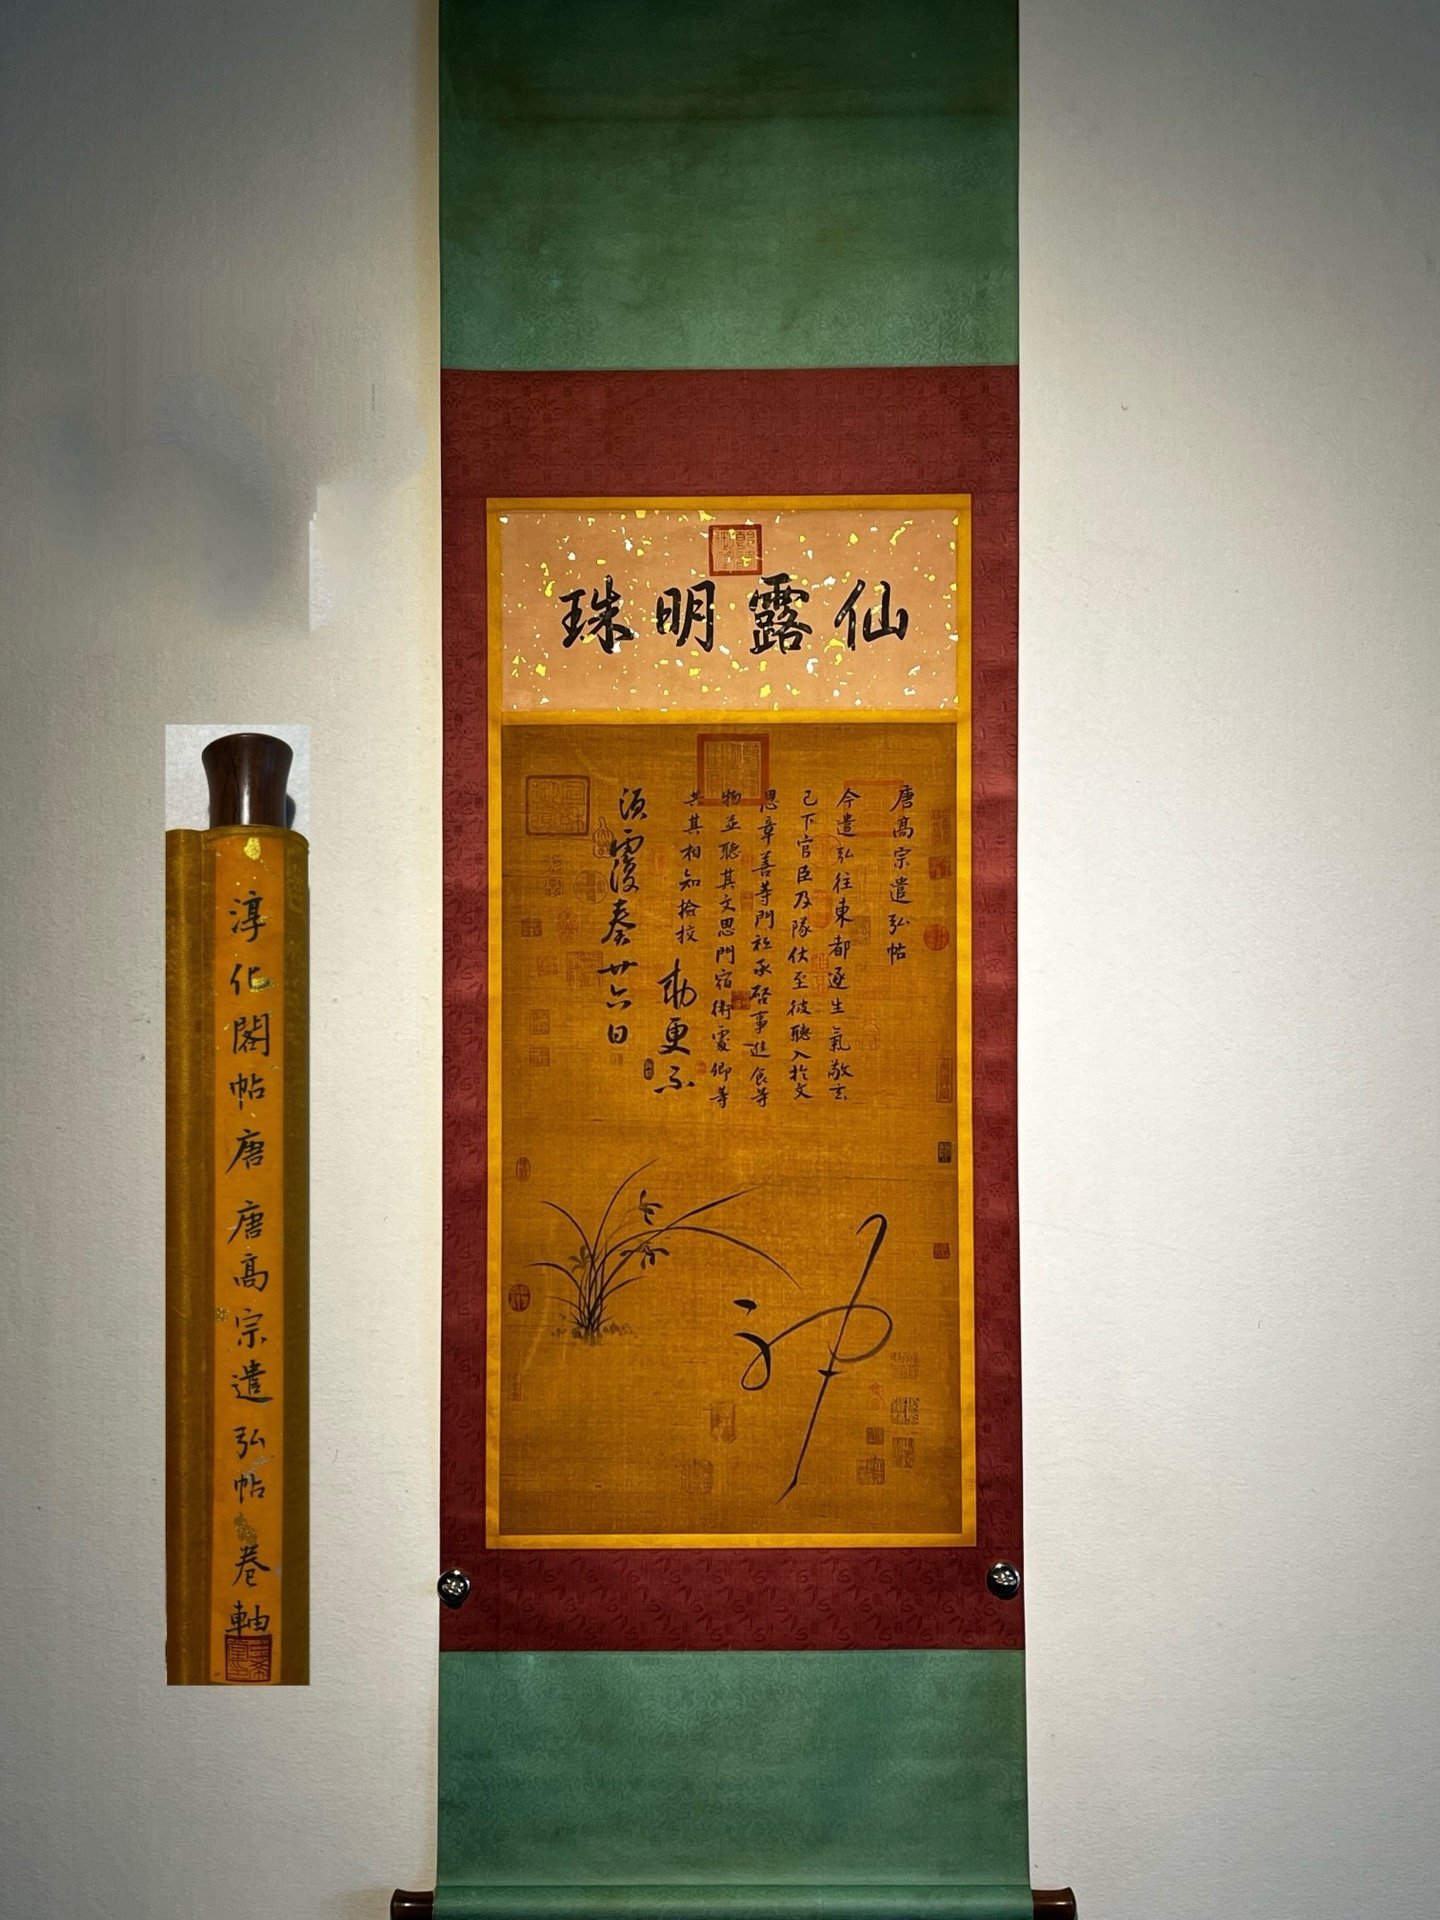 仙露明珠
唐高宗遣弘帖
今遣弘往東都逐生氣敬玄
己下官臣及隊仗至彼聽入於文
思章善等門祗承啓事進食等
物並聽其文思門宿衛處卿等
共其相知撿挍
勅更不
須覆奏廿六日
神
淳化閣帖唐 唐高宗遣弘帖卷軸